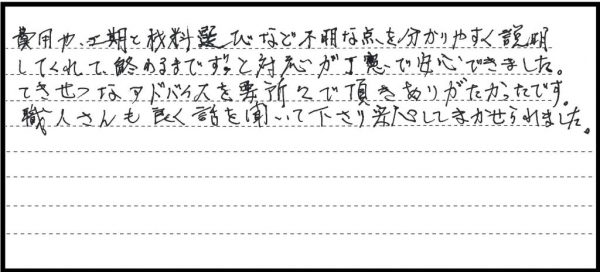 費用や、工期と材料選びなど不明な点を分かりやすく説明
してくれて、終わるまでずっと対応が丁寧で安心できました。
てきせつなアドバイスを要所々で頂きありがたかったです。
職人さんも良く話を聞いて下さり安心してまかせられました。